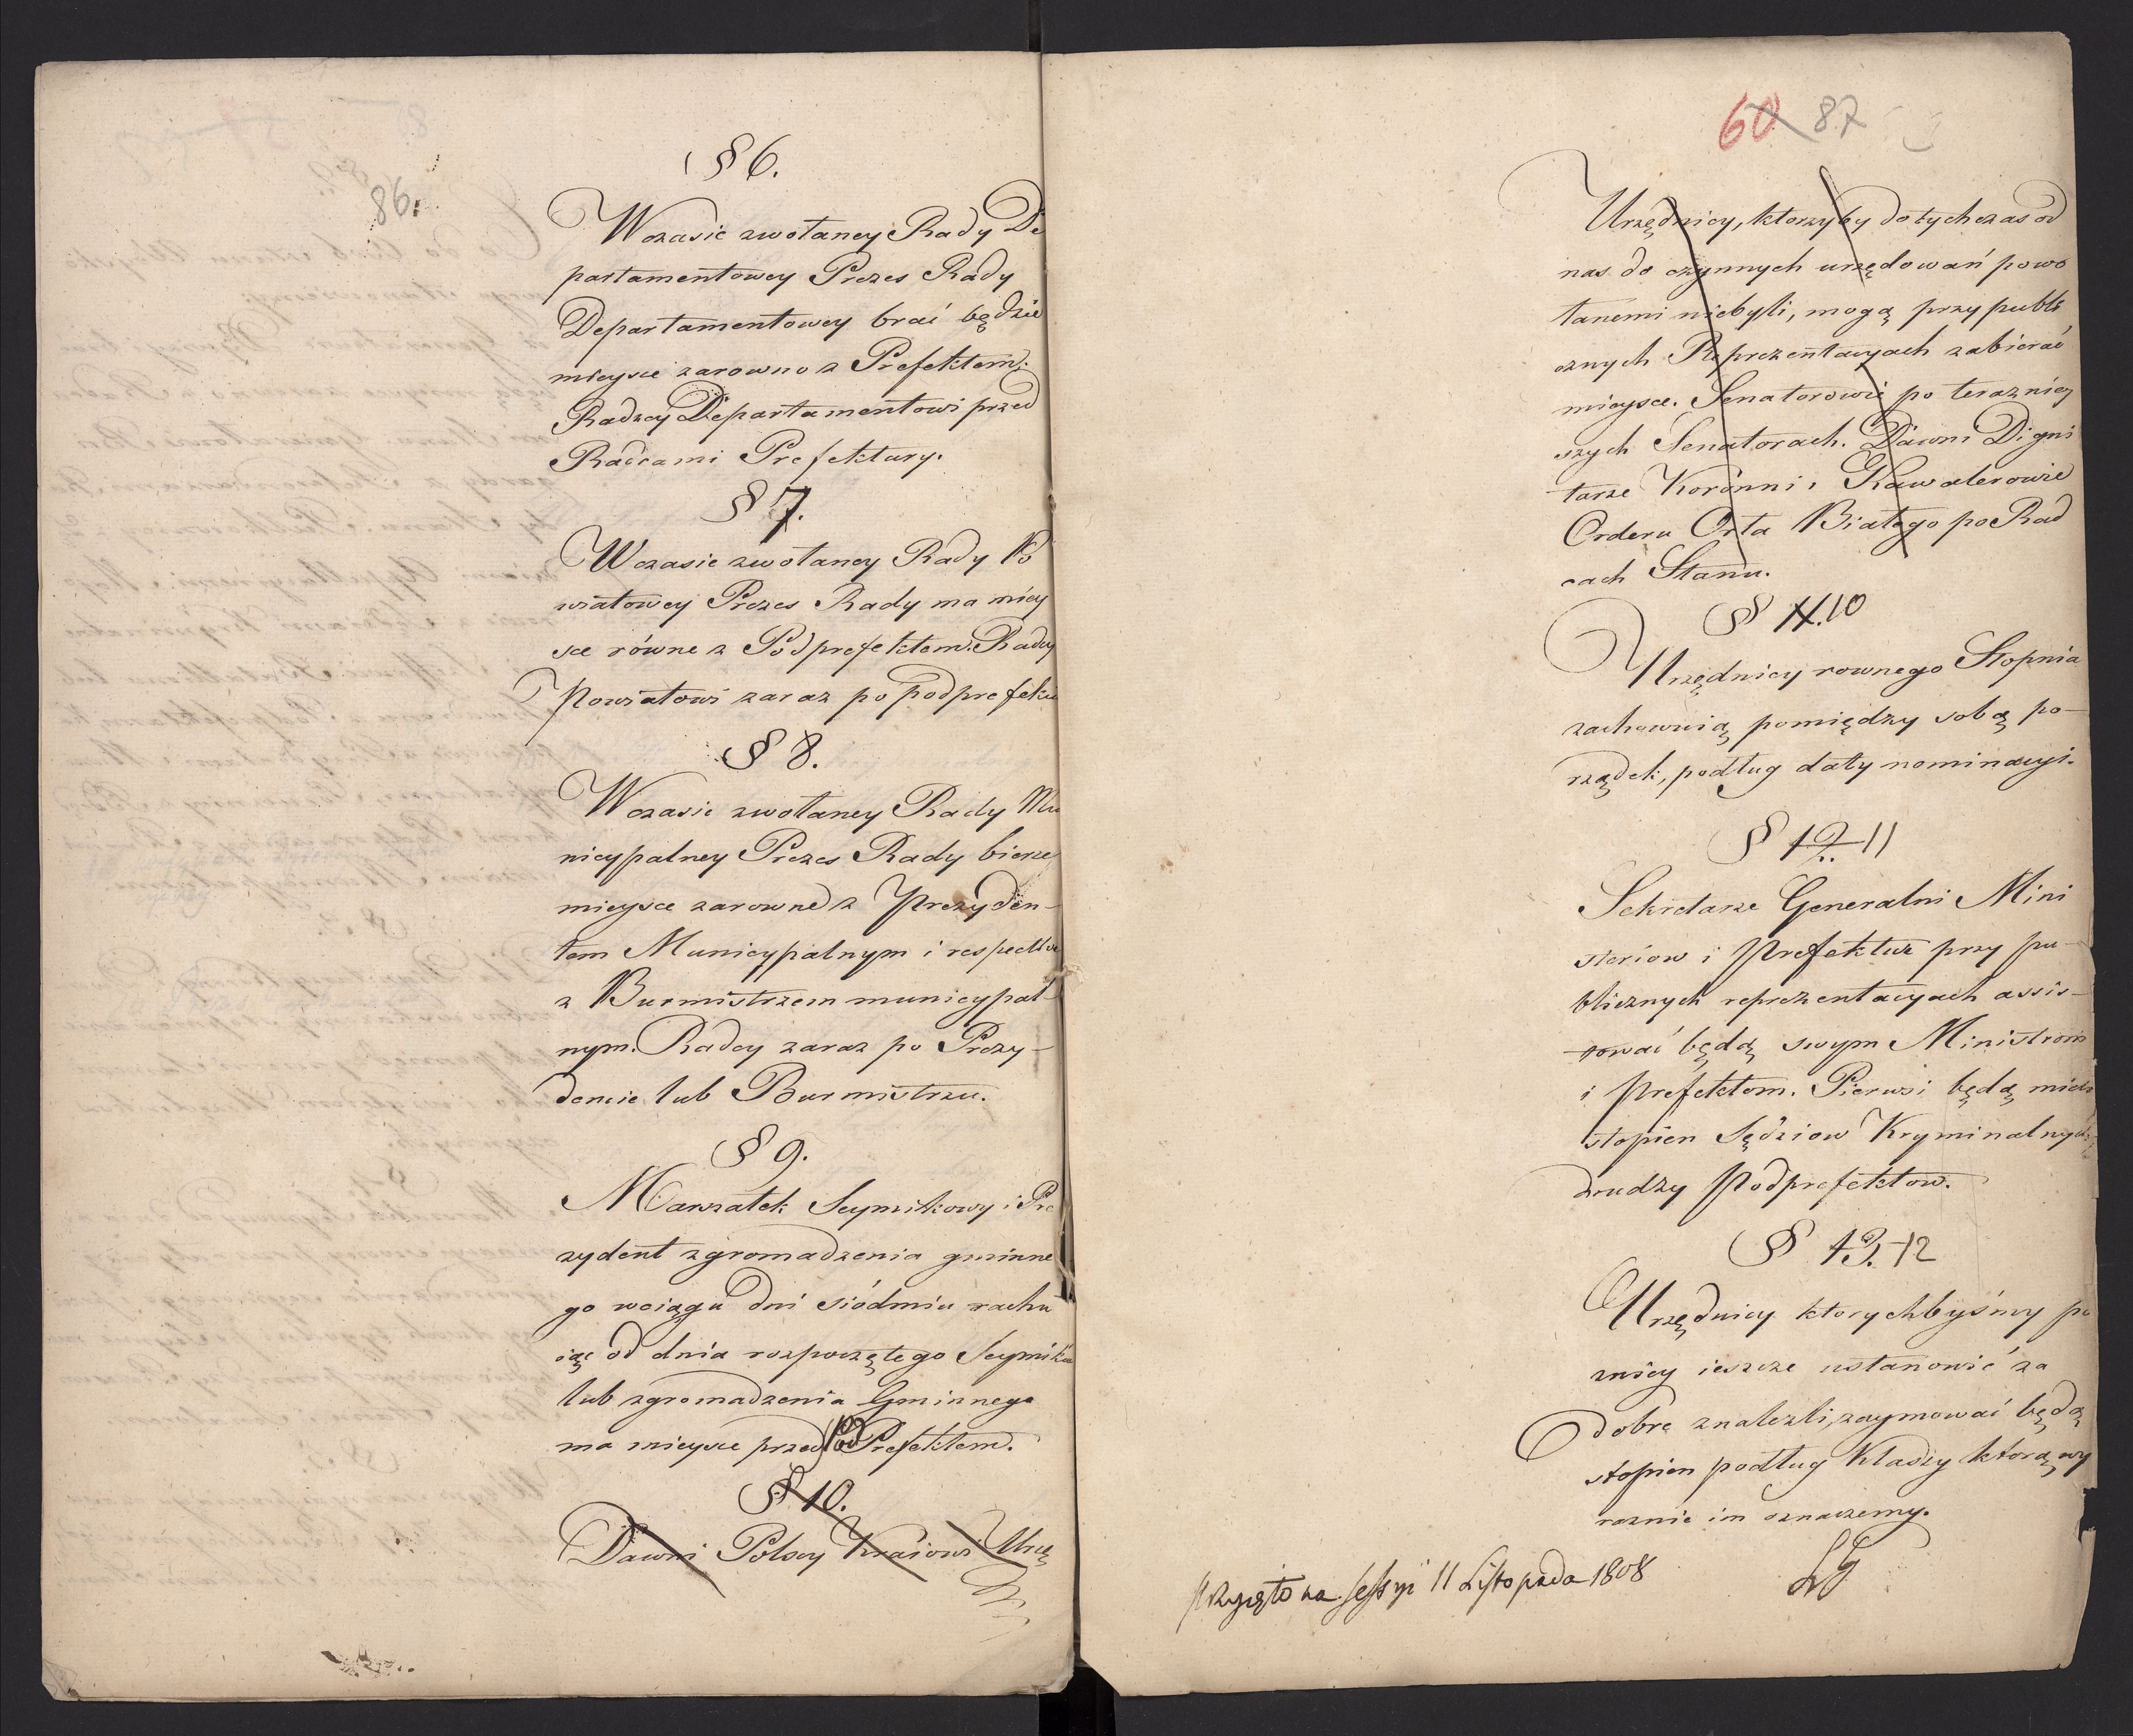 86.
§ 6.
W czasie zwołaney Rady De
partamentowey Prezes Rady
Departamentowey brać będzie
mieysce zarowno z Prefektem;
Radzcy Departamentowi przed
Radcami Prefektury.
§ 7.
W czasie zwołaney Rady Po
wiatowey Prezes Rady ma miey
sce równe z Podprefektem. Radcy
Powiatowi zaraz po podprefekcie
§ 8.
W czasie zwołaney Rady Mu
nicypalney Prezes Rady bierze
mieysce zarowne z Prezyden-
tem Municypalnym i respective
z Burmistrzem municypal-
nym. Radcy zaraz po Prezy-
dencie lub Burmistrzu.
§ 9.
Marszałek Seymikowy i Pre
zydent zgromadzenia gminne
go wciągu dni siódmiu rachu
iąc od dnia rozpoczętego Seymiku
lub zgromadzenia Gminnego
ma mieysce przed Pod Prefektem.
§ 10.
Dawni Polscy Kraiowi Urzę
60 87
Urzędnicy, ktorzyby dotychczas od
nas do czynnych urzędowań powo
łanemi niebyli, mogą przy publi
cznych Reprezentacyach zabierać
mieysce. Senatorowie po terazniey
szych Senatorach. Dawni Digni
tarze Koronni i Kawalerowie
Orderu Orła Białego po Rad
cach Stanu.
§ 11. 10
Urzędnicy rownego Stopnia
zachowuią pomiędzy sobą po-
rządek, podług daty nominacyi.
§ 12. 11
Sekretarze Generalni Mini
steriow i Prefektur przy pu-
blicznych reprezentacyach assis-
tować będą swym Ministrom
i Prefektom. Pierwsi będą mieli
stopien Sędziow Kryminalnych,
drudzy Podprefektow.
§ 13. 12
Urzędnicy ktorychbyśmy po
zniey ieszcze ustanowić za
dobre znalezli, zaymować będą
stopien podług Klassy którą wy
raznie im oznaczemy.
przyięto na sessyi 11 Listopada 1808